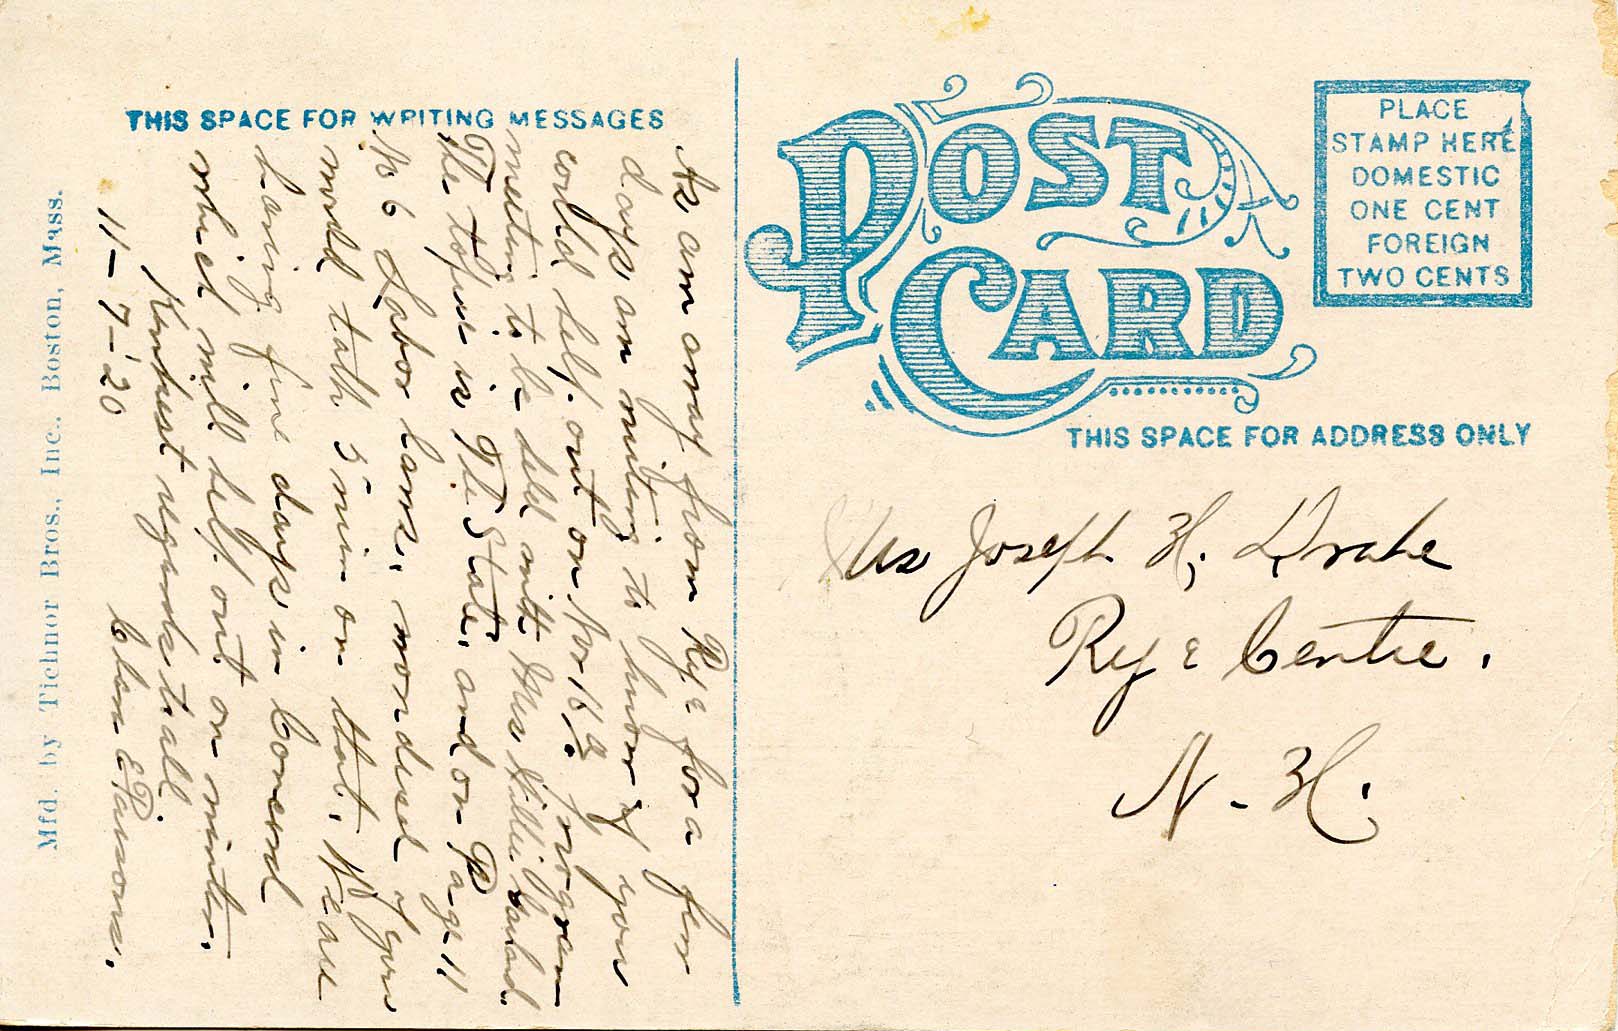 THIS SPACE FOR WRITING MESSAGES
As am away from Rye for a few
days am writing to know if you
could help out on for 16th program
meeting to be held with Mrs Willie Garland.
The topic is The State, and on Page 11
No 6 Labor laws, wondered if you
would talk 5 min on that. We are
having fine days in Concord
which will help out on winter.
Kindest regards to all.
E Parsons.
11-7-'20
Mfd. by Tichnor Bros., Inc., Boston, Mass.
POST CARD
PLACE
STAMP HERE
DOMESTIC
ONE CENT
FOREIGN
TWO CENTS
THIS SPACE FOR ADDRESS ONLY
Mrs Joseph H. Drake
Rye Centre.
N-H.